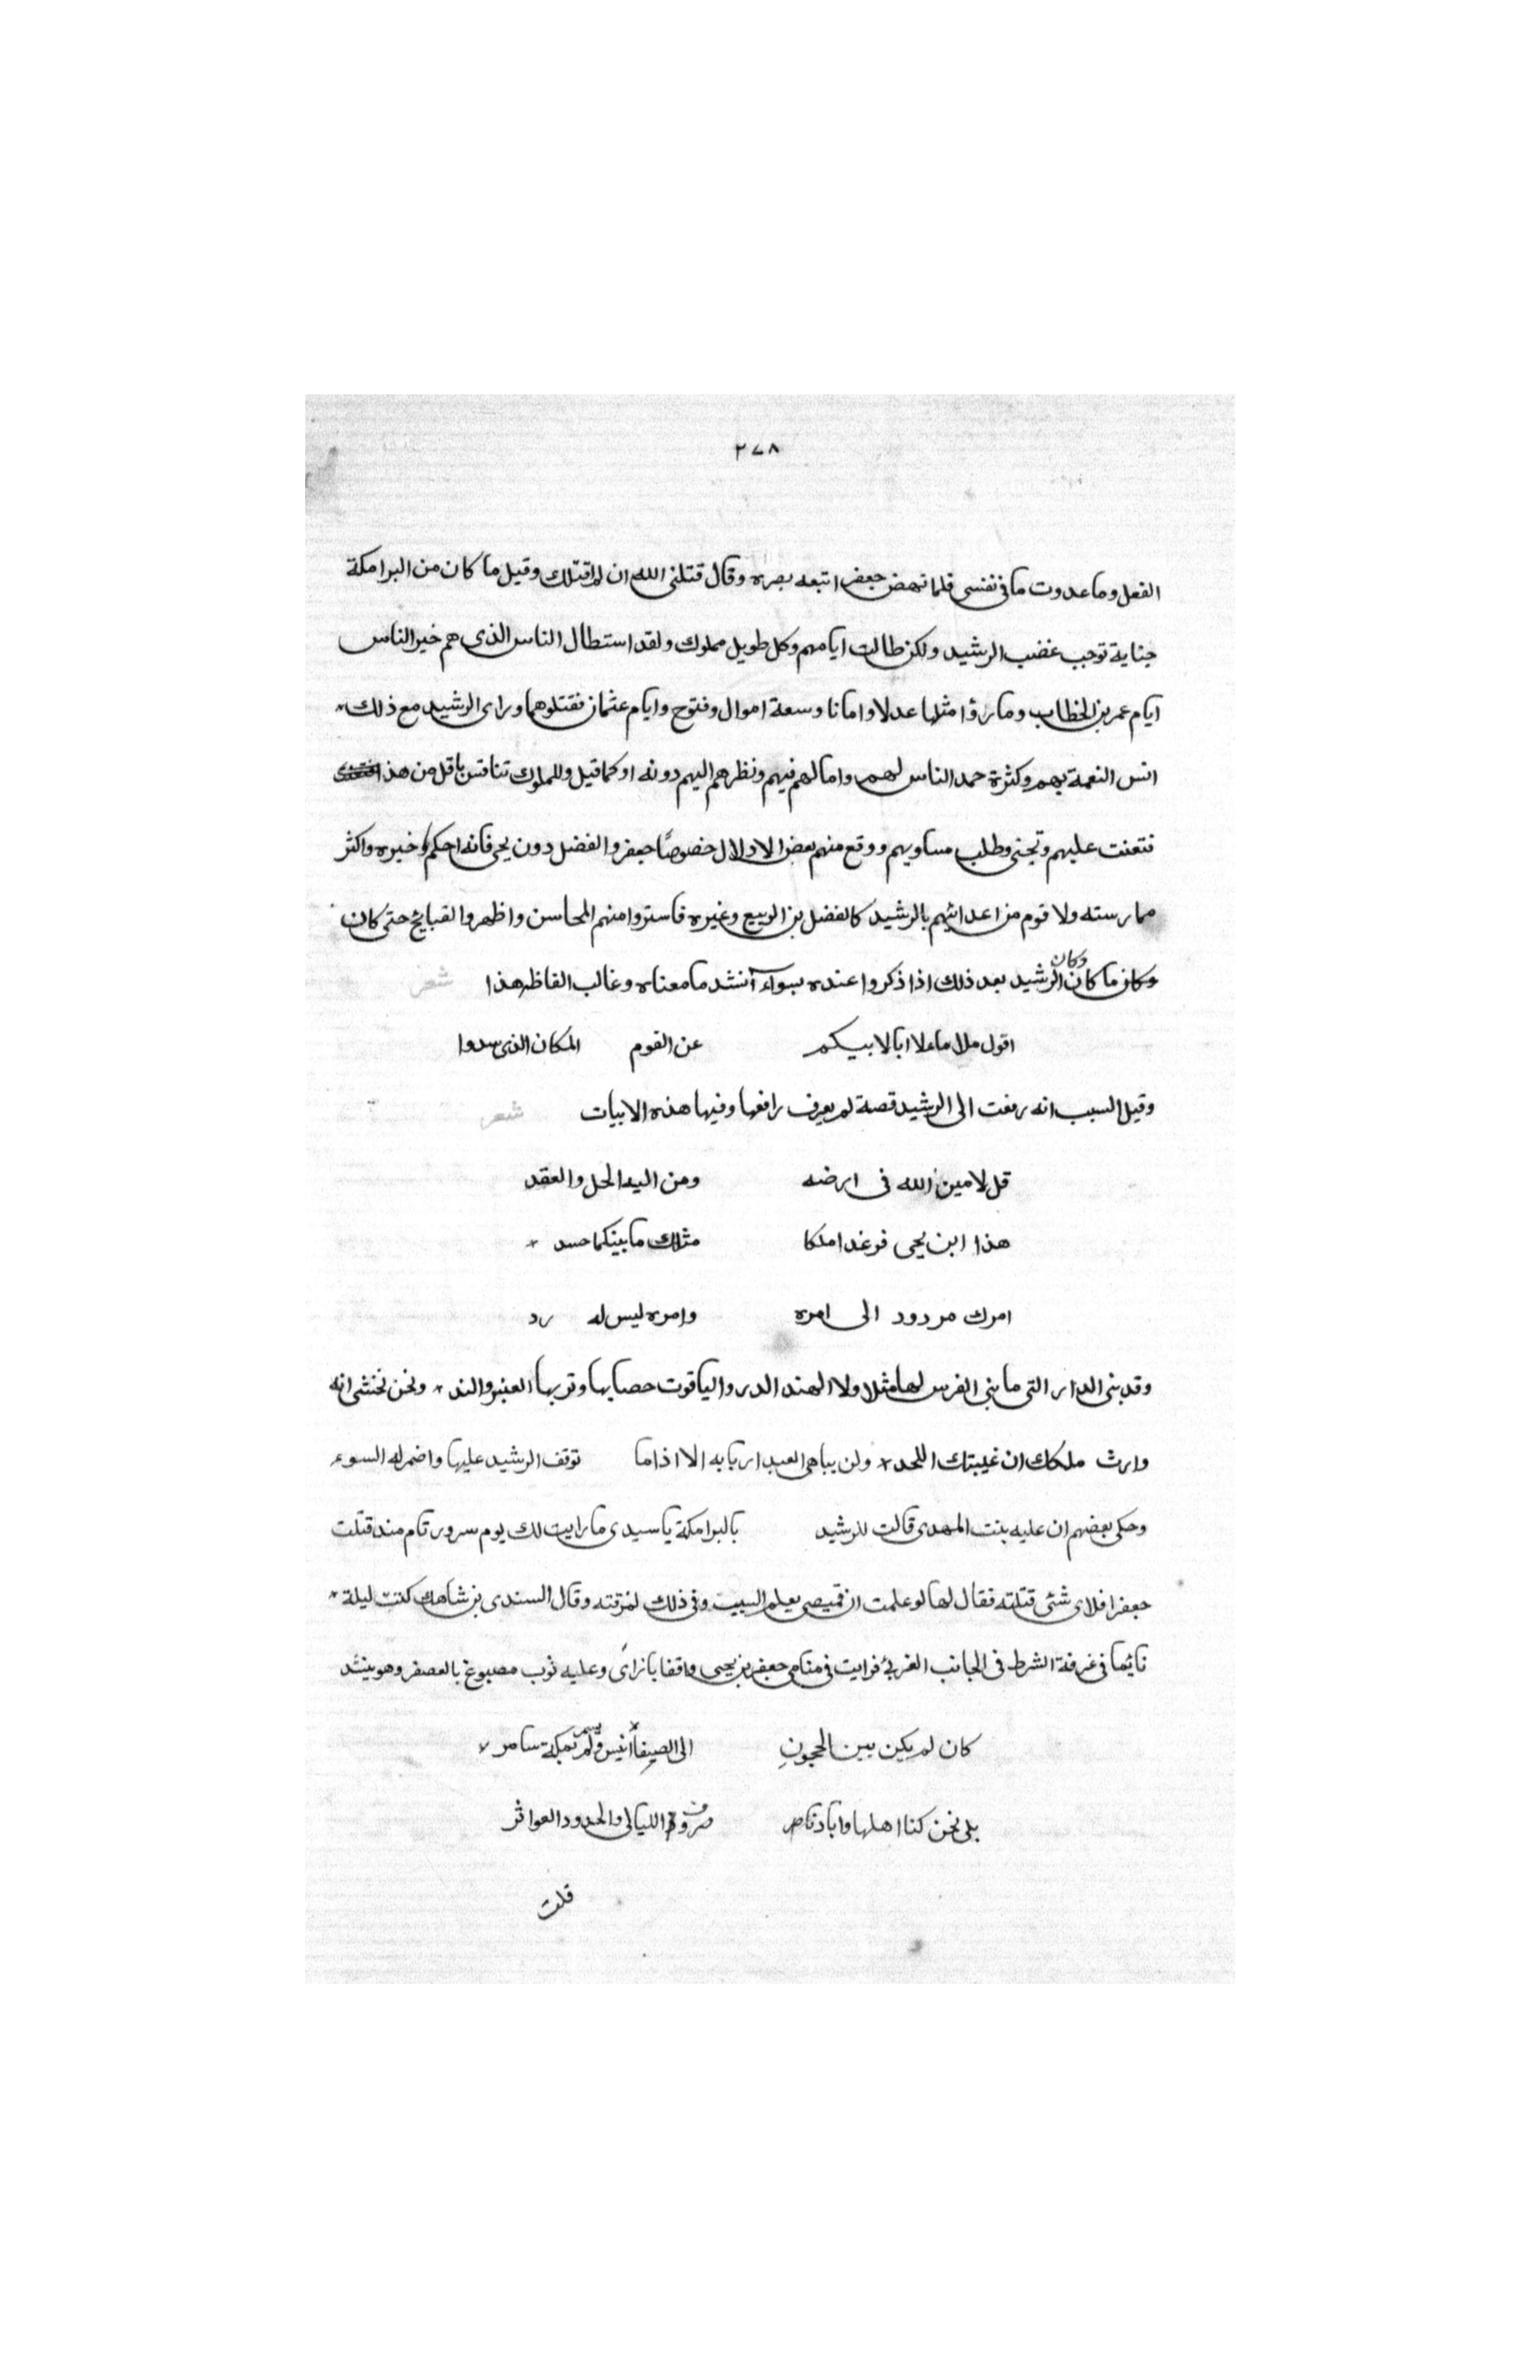 ٢٧٨
الفعل وما عدوت ما في نفسى فلما نهض جعفر اتبعه بصره وقال قتلنى الله ان لم اقتلك وقيل ما كان من البرامكة
جناية توجب غضب الرشيد ولكن طالت ايامهم وكل طويل مملوك ولقد استطال الناس الذى هم خير الناس
ايام عمر بن الخطاب وما رؤا مثلها عدلا وامانا وسعة اموال وفتوح وايام عثمان فقتلوهما وراى الرشيد مع ذلك
انس النعمة بهم وكثرة حمد الناس لهم وامالهم فيهم ونظرهم اليهم دونه او كما قيل وللملوك تنافس باقل من هذا
فتعنت عليهم وتجنى وطلب مساويهم ووقع منهم بعض الادلال خصوصًا جعفر والفضل دون يحيى فانه احكم خبره واكثر
ممارسته ولا قوم من اعدائهم بالرشيد كالفضل بن الربيع وغيره فاستروا منهم المحاسن واظهروا القبايح حتى كان
وكان ما كان وكان الرشيد بعد ذلك اذا ذكروا عنده بسوء آنشد ما معناه وغالب الفاظه هذا شعر
اقول ملا ما ملا ابا لابيكم عن القوم المكان الذى سدوا
وقيل السبب انه رفعت الى الرشيد قصة لم يعرف رافعها وفيها هذه الابيات شعر
قل لامين الله فى ارضه ومن اليه الحل والعقد
هذا ابن يحيى قد غدا ملكا مثلك ما بينكما حسد
امرك مردود الى امره وامره ليس له رد
وقد بنى الدار التى ما بنى الفرس لها مثلا ولا الهند الدر والياقوت حصبايها وتربها العنبر والند ونحن نخشى انه
وارث ملكك ان غيبتك اللحد ولن يباهى العبد اربابه الا اذا ما توقف الرشيد عليها واضمر له السوء
وحكى بعضهم ان عليه بنت المهدى قالت للرشيد بالبرامكة يا سيدى ما رايت لك يوم سرور تام منذ قتلت
جعفرا فلاى شئى قتلته فقال لها لو علمت ان قميصى يعلم السبب فى ذلك لمزقته وقال السندى بن شاهك كنت ليلة
نايما فى غرفة الشرط فى الجانب الغربى فرايت فى منامى جعفر بن يحيى واقفا بازاى وعليه ثوب مصبوغ بالعصفر وهو ينشد
كان لم يكن بين الحجونِ الى الصفا انيس ولم يسمر بمكة سامر
بلى نحن كنا اهلها وابادنا صروف الليالى والحدود العواثر
قلت